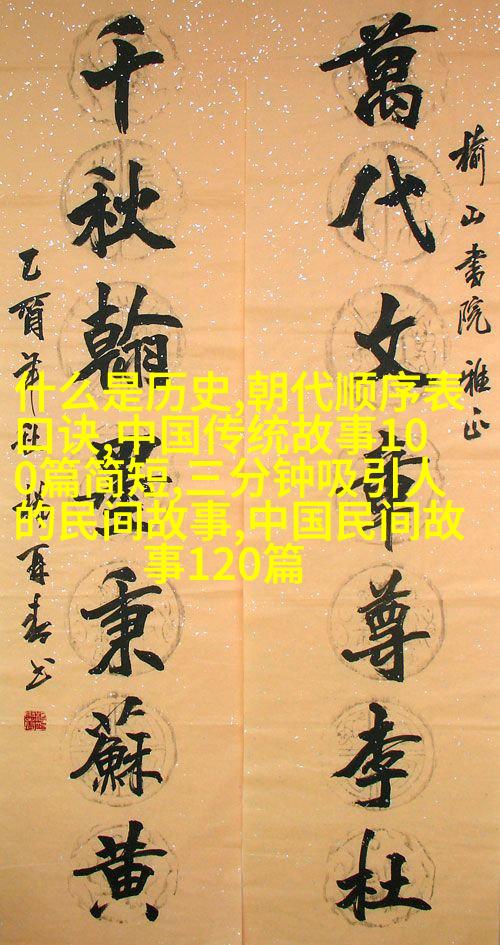 榆山書院雅正
萬代文章尊李杜
千秋翰墨秉蘇黄
什么是历史,朝代顺序表
口诀,中国传统故事10
0篇简短,三分钟吸引人
的民间故事,中国民间故
事120篇